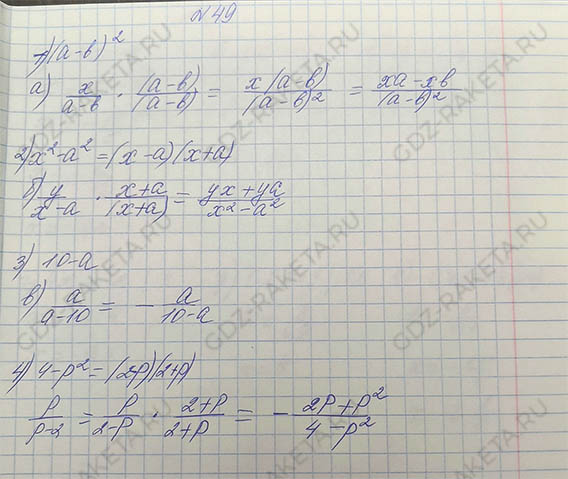 №49
1) (a-b)²
a) x/(a-b) · (a-b)/(a-b) = x(a-b)/(a-b)² = (xa-xb)/(a-b)²
2) x²-a²=(x-a)(x+a)
б) y/(x-a) · (x+a)/(x+a) = (yx+ya)/(x²-a²)
3) 10-a
в) a/(a-10) = - a/(10-a)
4) 4-p²=(2-p)(2+p)
p/(p-2) = p/(2-p) · (2+p)/(2+p) = - (2p+p²)/(4-p²)
GDZ-RAKETA.RU